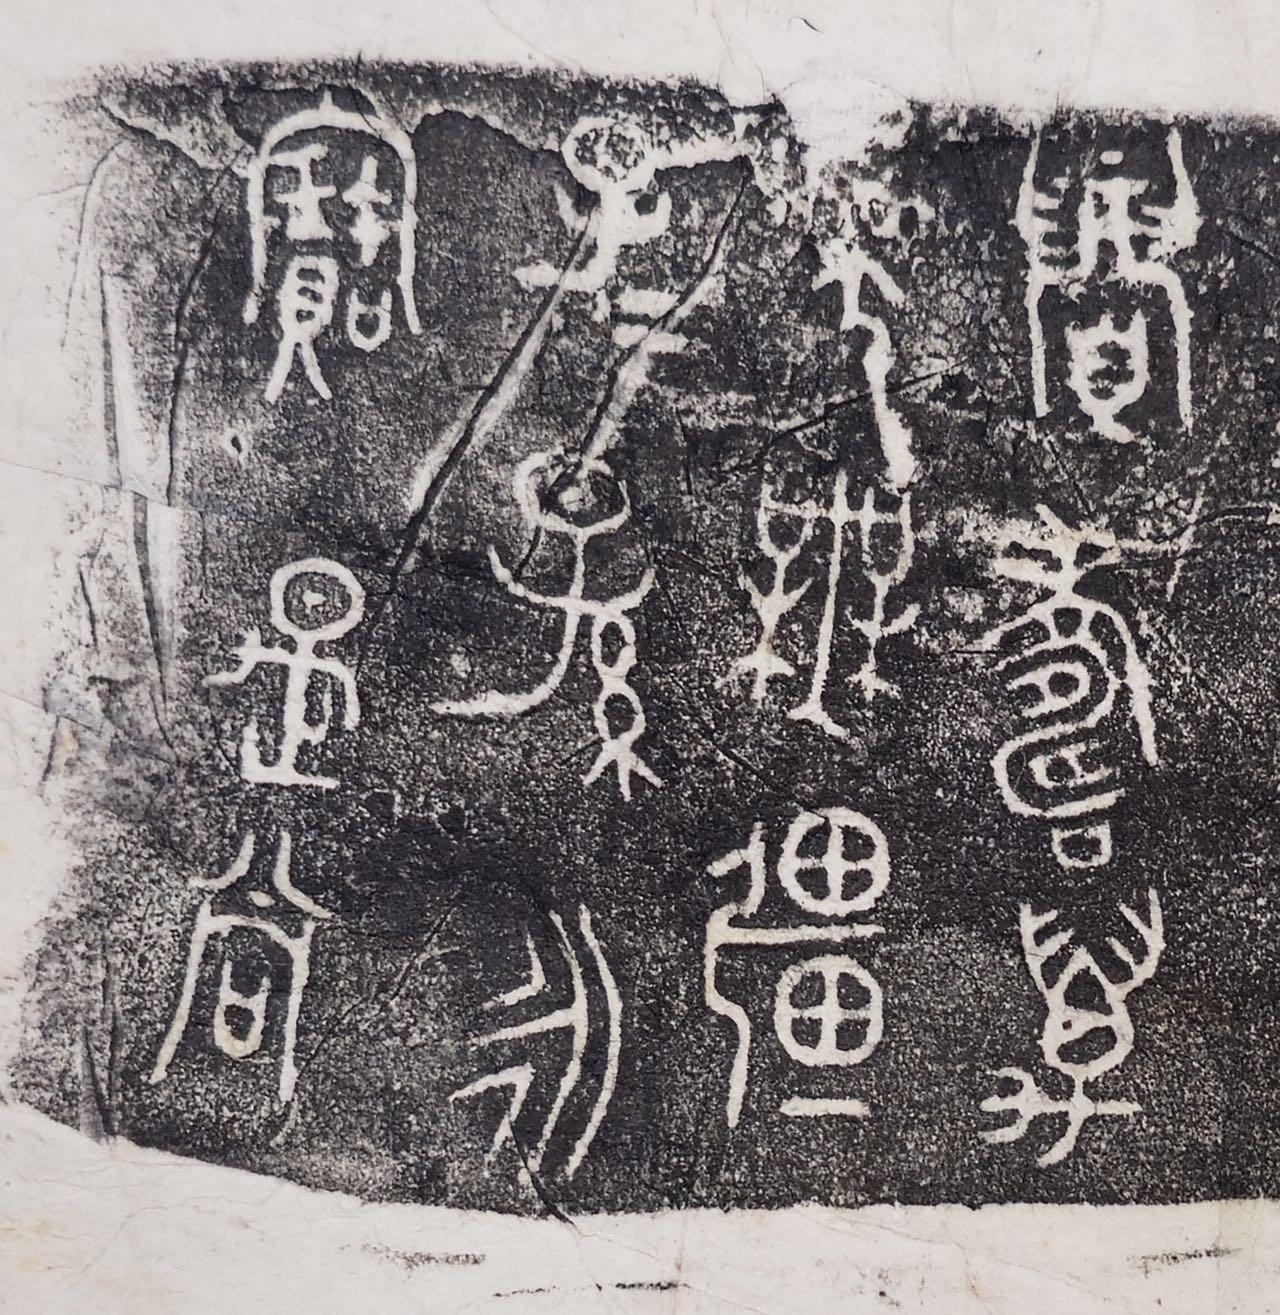 眉壽萬
年無疆
子=孫永
寶是尚